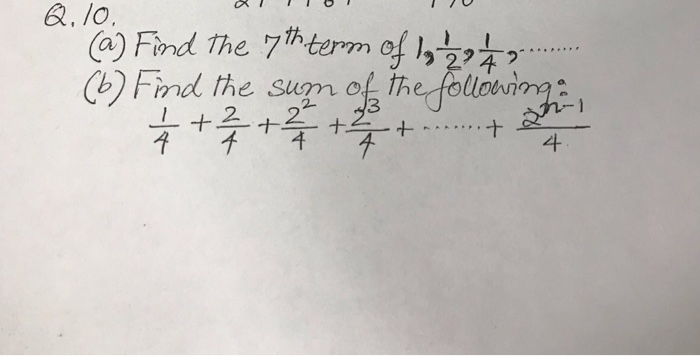 Q.10.
(a) Find the 7th term of 1, 1/2, 1/4, ..........
(b) Find the sum of the following:
1/4 + 2/4 + 2²/4 + 2³/4 + ........ + 2ⁿ⁻¹/4